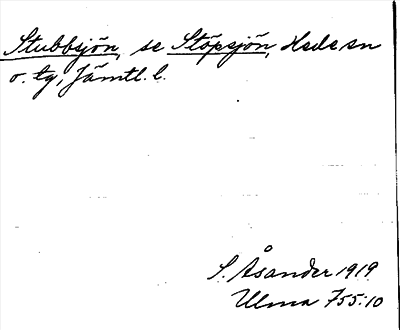 Stubbsjön, se Stöpsjön, Hede sn
o. tg, Jämtl. l.
S. Åsander 1919
Ulma 755:10